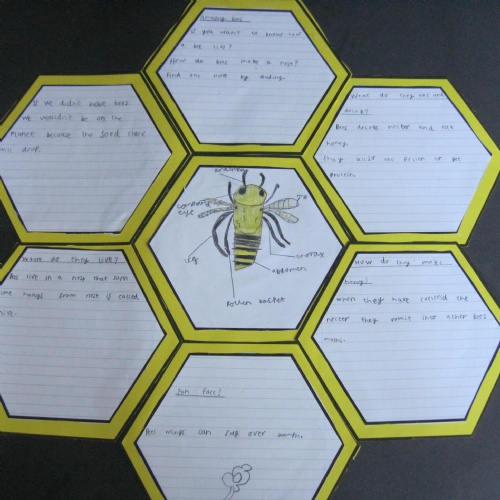 Amazing bees
If you want to know how
a bee live?
How do bees make a nest?
find out more by reading.
If we didn't have bees
we wouldn't be on the
Planet because the food chare
will drop.
What do they eat and
drink?
Bees drink necter and eat
honey.
they also eat Pollen to get
protein.
antenna
compound
eye
leg
thorax
abdomen
Pollen basket
Where do they live?
Bees live in a nest that
some hangs from nest is called
hive.
How do they make
honey?
When they have collectd the
necter they vomit into other bees
mouths.
Fun Fact!
Bees wings can flap over